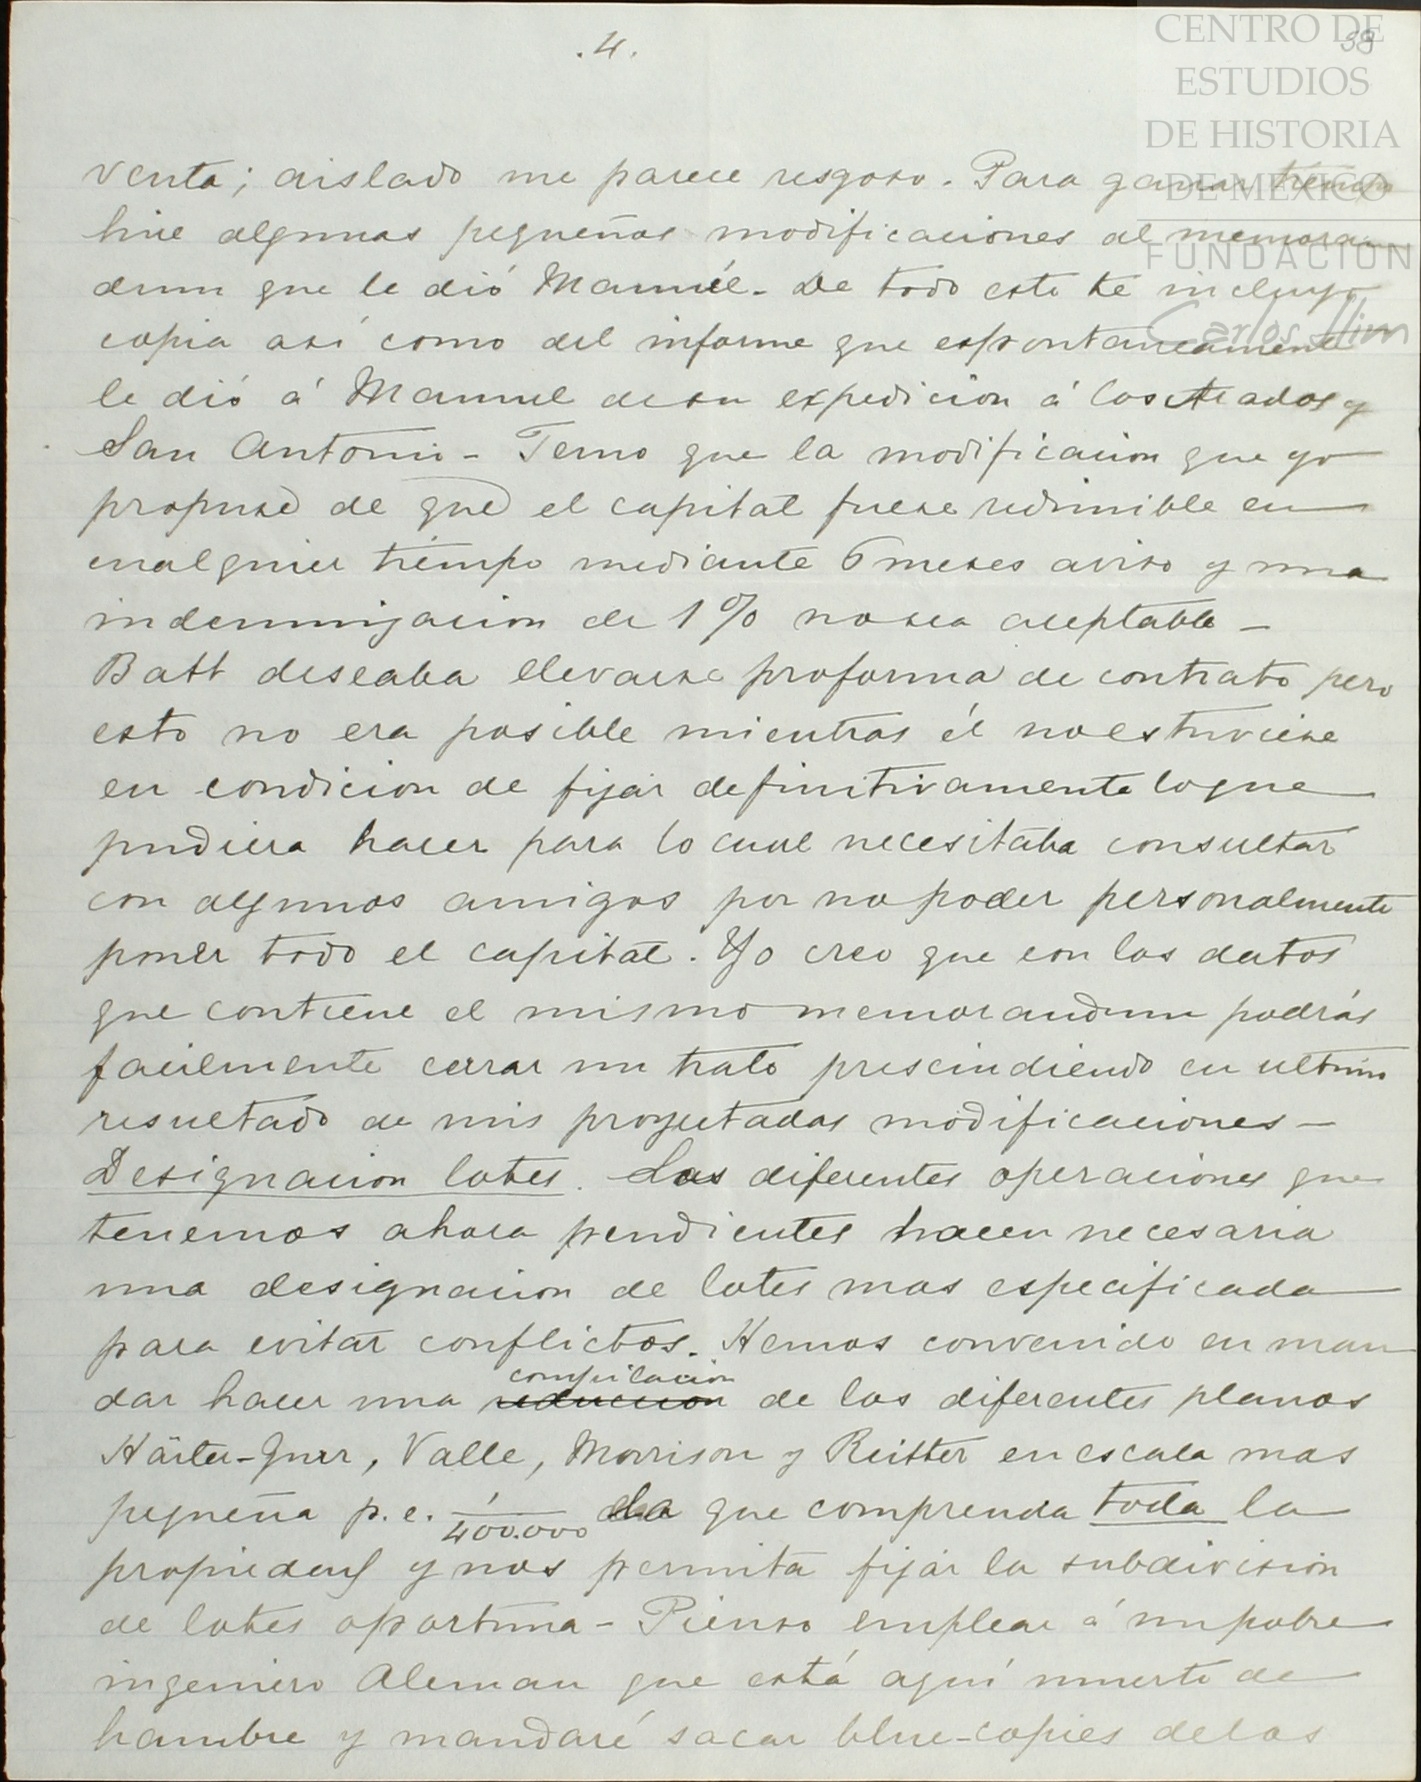 .4.
38
CENTRO DE
ESTUDIOS
DE HISTORIA
DE MEXICO
FUNDACION
Carlos Slim
venta; aislado me parece resgoso. Para ganar tiempo
hice algunas pequeñas modificaciones al memoran
dum que le dió Manuél. De todo esto te incluyo
copia así como del informe que espontaneamente
le dió á Manuel de su expedicion á los y
San Antonio - Temo que la modificacion que yo
propuse de que el capital fuese redimible en
cualquier tiempo mediante 6 meses aviso y una
indemnizacion de 1% no sea aceptable -
Batt deseaba llevarse proforma de contrato pero
esto no era posible mientras él no estuviese
en condicion de fijar definitivamente lo que
pudiera hacer para lo cual necesitaba consultar
con algunos amigos por no poder personalmente
poner todo el capital. Yo creo que con los datos
que contiene el mismo memorandum podrás
facilmente cerrar un trato prescindiendo en ultimo
resultado de mis proyectadas modificaciones -
Designacion lotes. Las diferentes operaciones que
tenemos ahora pendientes hacen necesaria
una designacion de lotes mas especificada
para evitar conflictos. Hemos convenido en man
compilacion
dar hacer una reduccion de los diferentes planos
Härter-Gurr, Valle, Morrison y Reitter en escala mas
pequeña p.e. 1/400.000 que comprenda toda la
propiedad y nos permita fijar la subdivision
de lotes oportuna - Pienso emplear á un pobre
ingeniero Aleman que está aquí muerto de
hambre y mandaré sacar blue-copies de los